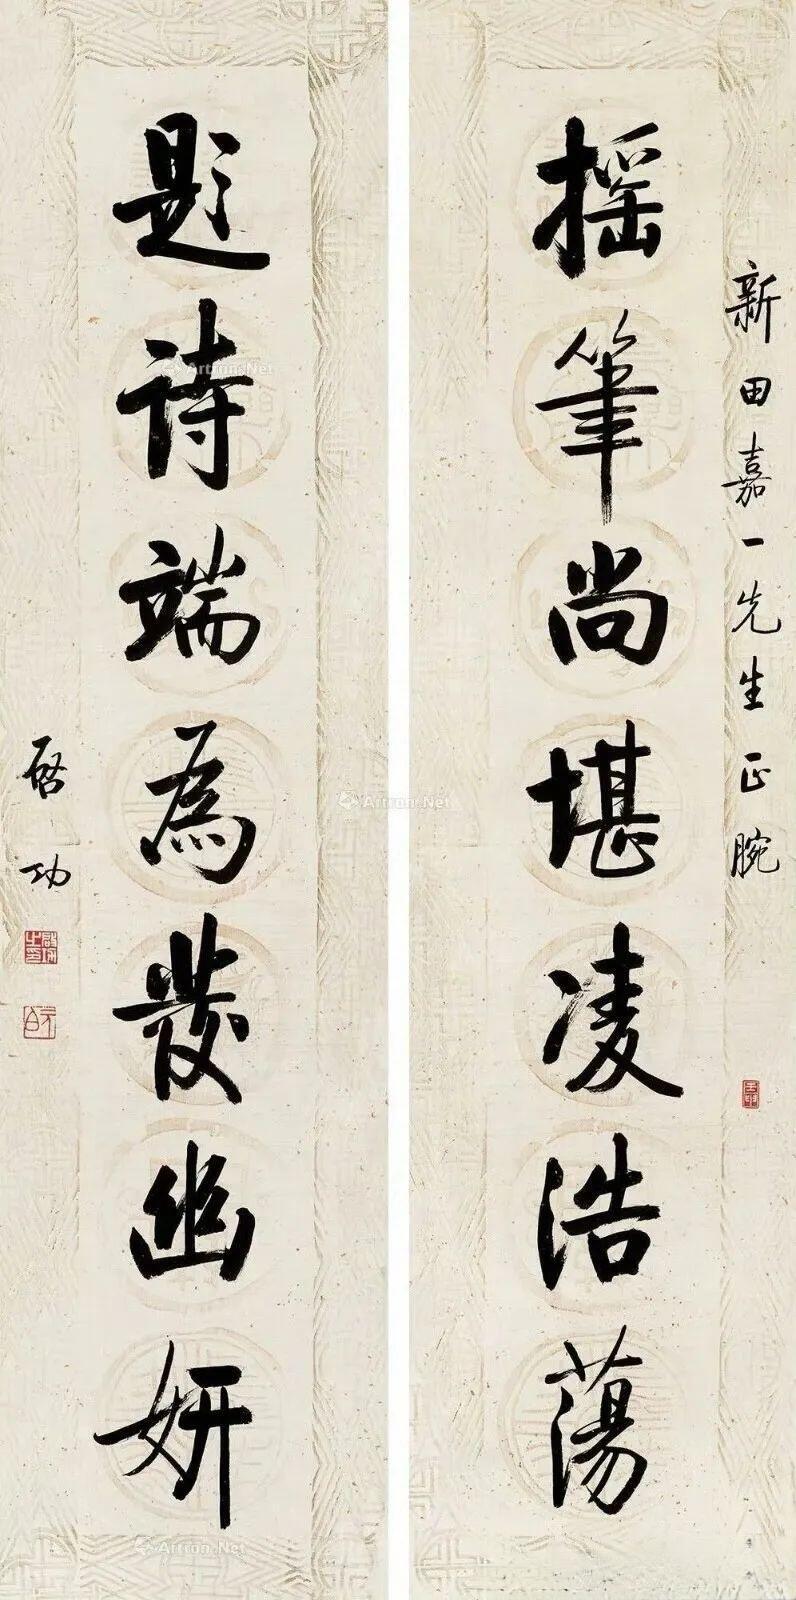 新田嘉一先生正腕
摇筆尚堪凌浩蕩
題詩端為發幽妍
啓功
啓功之印
元白
Artron.Net
Artron.Net
Artron.Net